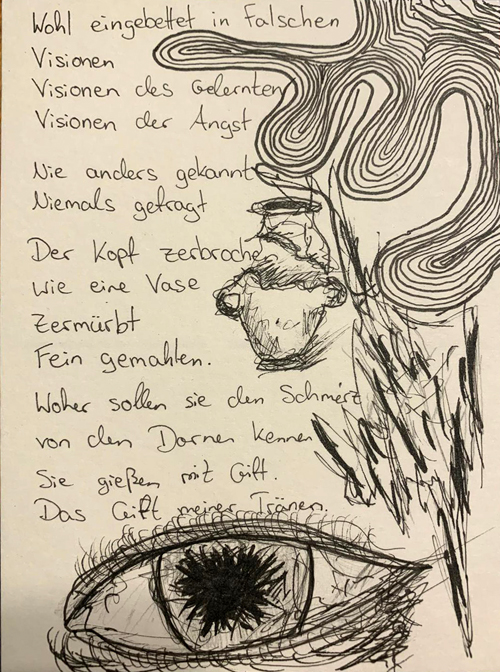 Wohl eingebettet in Falschen
Visionen
Visionen des Gelernten
Visionen der Angst
Nie anders gekannt
Niemals gefragt
Der Kopf zerbroche
wie eine Vase
Zermürbt
Fein gemahlen.
Woher sollen sie den Schmerz
von den Dornen kennen
Sie gießen mit Gift.
Das Gift meiner Tränen.